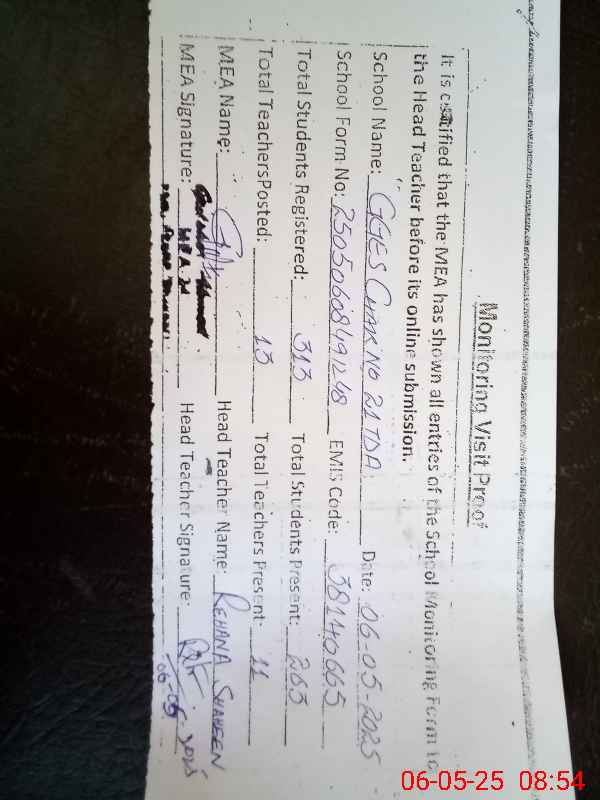 Monitoring Visit Proof
It is certified that the MEA has shown all entries of the School Monitoring Form to
the Head Teacher before its online submission.
School Name: GGES CHAK NO 21 TDA Date: 06-05-2025
School Form No: 25050608491248 EMIS Code: 38140665
Total Students Registered: 313 Total Students Present: 263
Total Teachers Posted: 13 Total Teachers Present: 11
MEA Name: Head Teacher Name: REHANA SHAHEEN
MEA Signature: Head Teacher Signature:
06-05-25 08:54